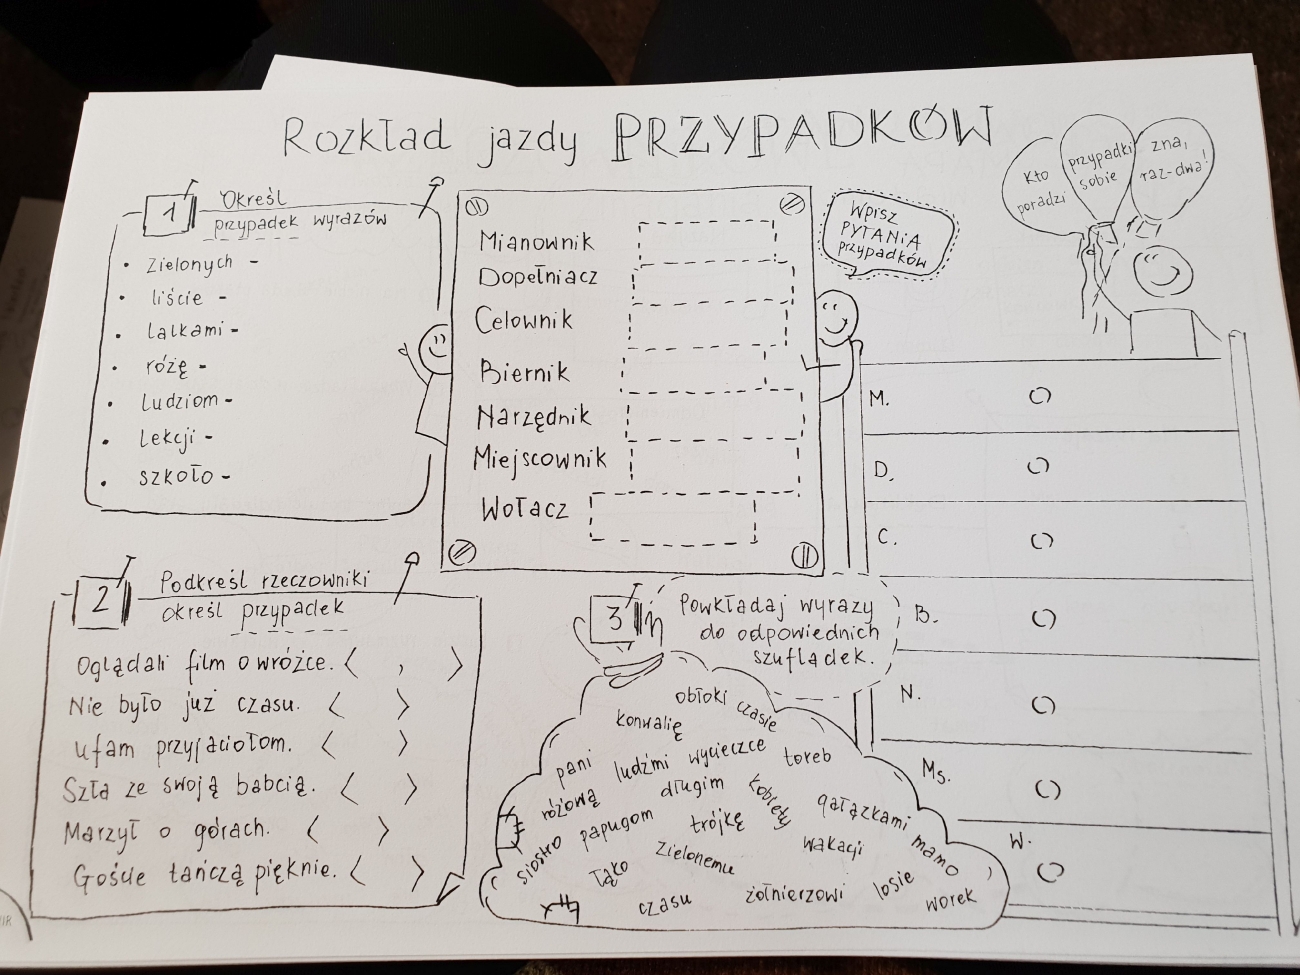 Rozkład jazdy PRZYPADKÓW
Kto
poradzi
przypadki
sobie
zna,
raz-dwa!
1
Określ
przypadek wyrazów
• zielonych -
• liście -
• lalkami -
• różę -
• ludziom -
• lekcji -
• szkoło -
Mianownik
Dopełniacz
Celownik
Biernik
Narzędnik
Miejscownik
Wołacz
Wpisz
PYTANIA
przypadków
M.
D.
C.
B.
N.
Ms.
W.
2
Podkreśl rzeczowniki
określ przypadek
Oglądali film o wróżce. < , >
Nie było już czasu. < >
Ufam przyjaciołom. < >
Szła ze swoją babcią. < >
Marzył o górach. < >
Goście tańczą pięknie. < >
3
Powkładaj wyrazy
do odpowiednich
szufladek.
obłoki czasie
konwalię
pani ludźmi wycieczce toreb
różową długim kobiety gałązkami
siostro papugom trójkę wakacji mamo
łąko zielonemu
czasu żołnierzowi losie worek